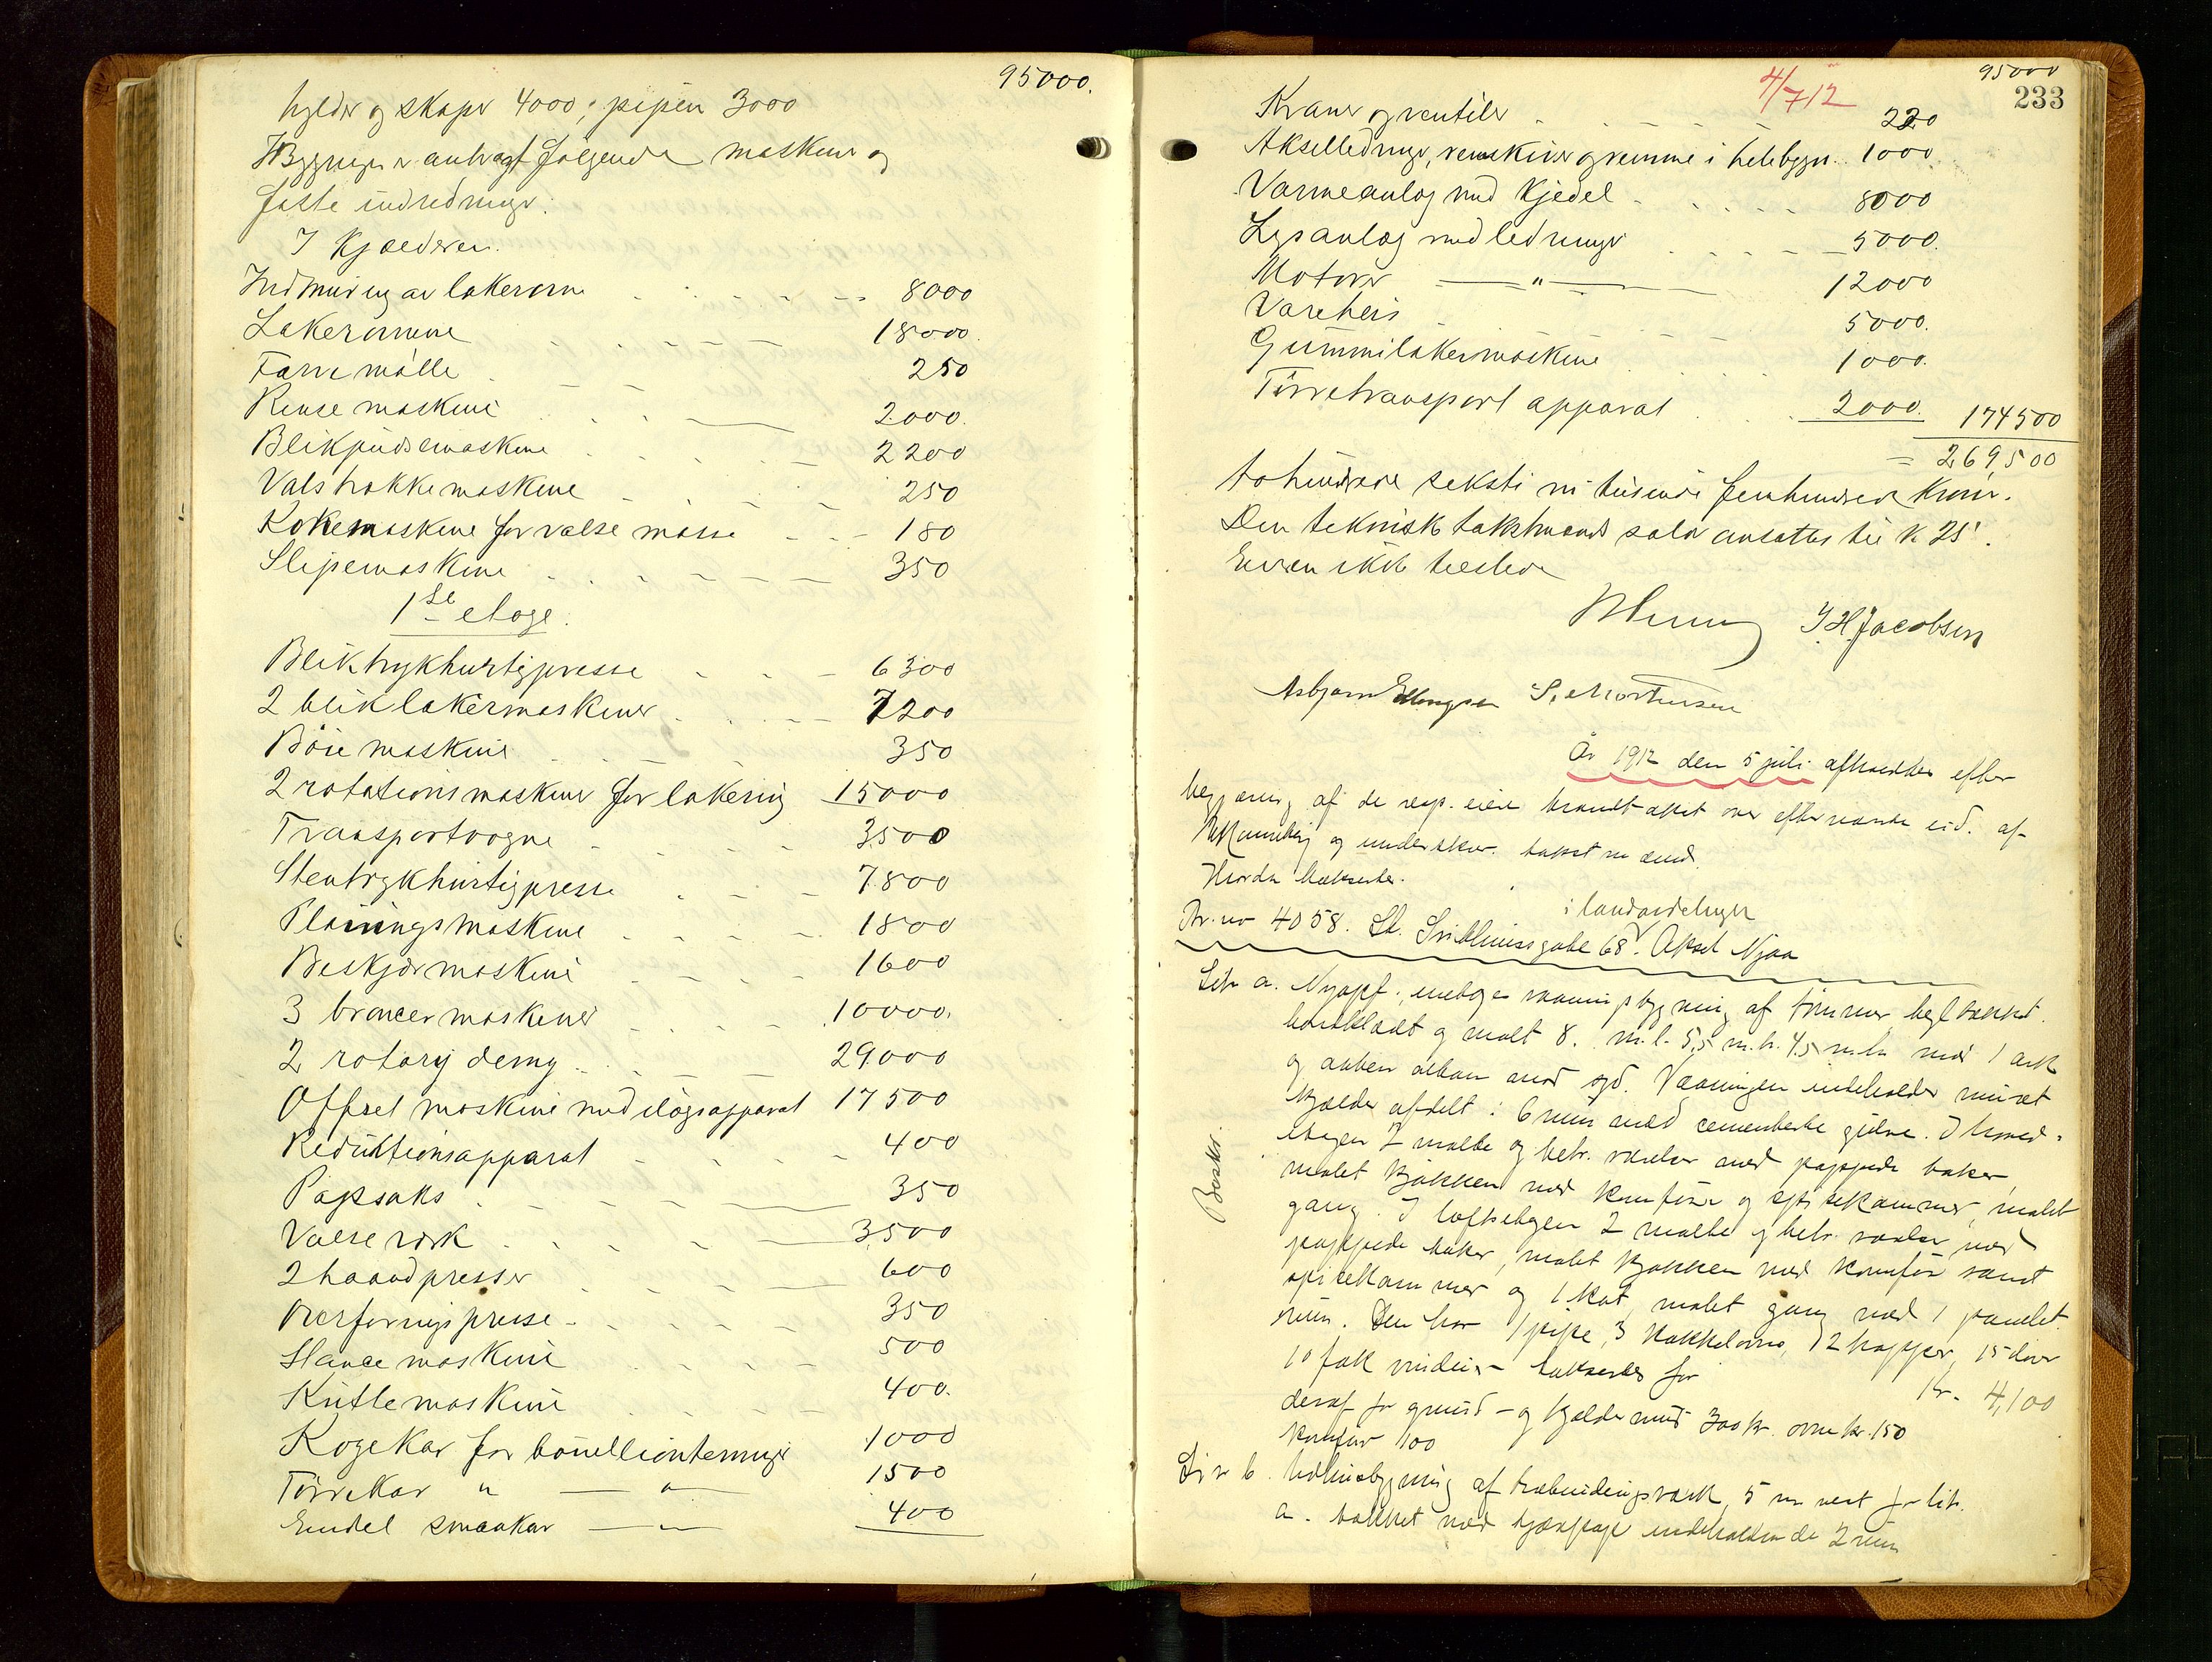 95000.
hylder og skaper 4000; pipen 3000
I Bygningen er anbragt følgende maskiner og
faste indredninger.
I Kjælderen.
Indmuring av lakerovne 8000
Lakerovnene 18000.
Farvemølle 250
Rensemaskine 2000.
Blikpudsemaskine 2200
Valsetrækkemaskine 250
Kokemaskine for valsemasse 180
Slipemaskine 350
1ste etage.
Bliktrykhurtigpresse 6300
2 bliklakermaskiner 7200
Bøiemaskine 350
2 rotationsmaskiner for lakering 15000
Transportvogne 3500
Stentrykhurtigpresse 7800
Planingsmaskine 1800
Beskjærmaskine 1600
3 broncermaskiner 10000.
2 rotary demy 29000
Offset maskine med ilægsapparat 17500
Reduktionsapparat 400
Papsaks 350
Valseværk 3500
2 haandpresser 600
Overføringspresse 350
Stancemaskine 500
Knittemaskine 400.
Kogekar for bouillionterninger 1000
Tørrekar " — " — 1500
Endel smaakar — " — 400
4/7 12
95000
233
Kraner og ventiler 220
Akselledninger, remskiver og remme i hele bygn. 1000
Varmeanlæg med Kjedel 8000
Lysanlæg med ledninger 5000.
Motorer — " — 12000
Vareheis 5000.
Gummilakermaskine 1000.
Tørretransport apparat 2000. 174500
= 269500
tohundrede seksti ni tusende femhundrede Kroner.
Den tekniske takstmands salær ansattes til k 25.
Eieren ikke tilstede
J H Jacobsen
Asbjørn Ellingsen S. Mortensen
År 1912 den 5 juli afholdtes efter
begjæring af de resp. eiere brandtakst over efternævnte eid. af
og underskr. takstmænd.
Hvorda takseres.
i landardelinger
Br. no 4058. St. Svithunsgate 68. Aksel Njaa
Litr a. Nyopf. enetages vaaningsbygning af tømmer, teglteækket.
bordklædt og malt 8. m.l. 5,5 m.b. 4,5 m.h. med 1 ark
og aaben altan mod syd. Vaaningen indeholder muret
Kjælder afdelt i 6 rum med cementerte gulve. I hoved-
etagen 2 malte og betr. værelser med pappede taker
malet Kjøkken med komfur og spisekammer, malet
gang. I loftsetagen 2 malte og betr. værelser med
pappede taker, malet Kjøkken med komfur samt
spisekammer og 1 kot, malet gang med 1 panelet
rum. Den har 1 pipe, 3 kakkelovne, 2 trapper, 15 døre
10 fak vinduer – takseres for Kr. 4,100
Beskr.
deraf for grund- og kjældermur 300 kr. ovne kr. 150
komfur 100
Litr b. Udhusbygning af træbindingsværk, 5 m vest for litr.
a. tækket med tjærepap indeholdende 2 rum